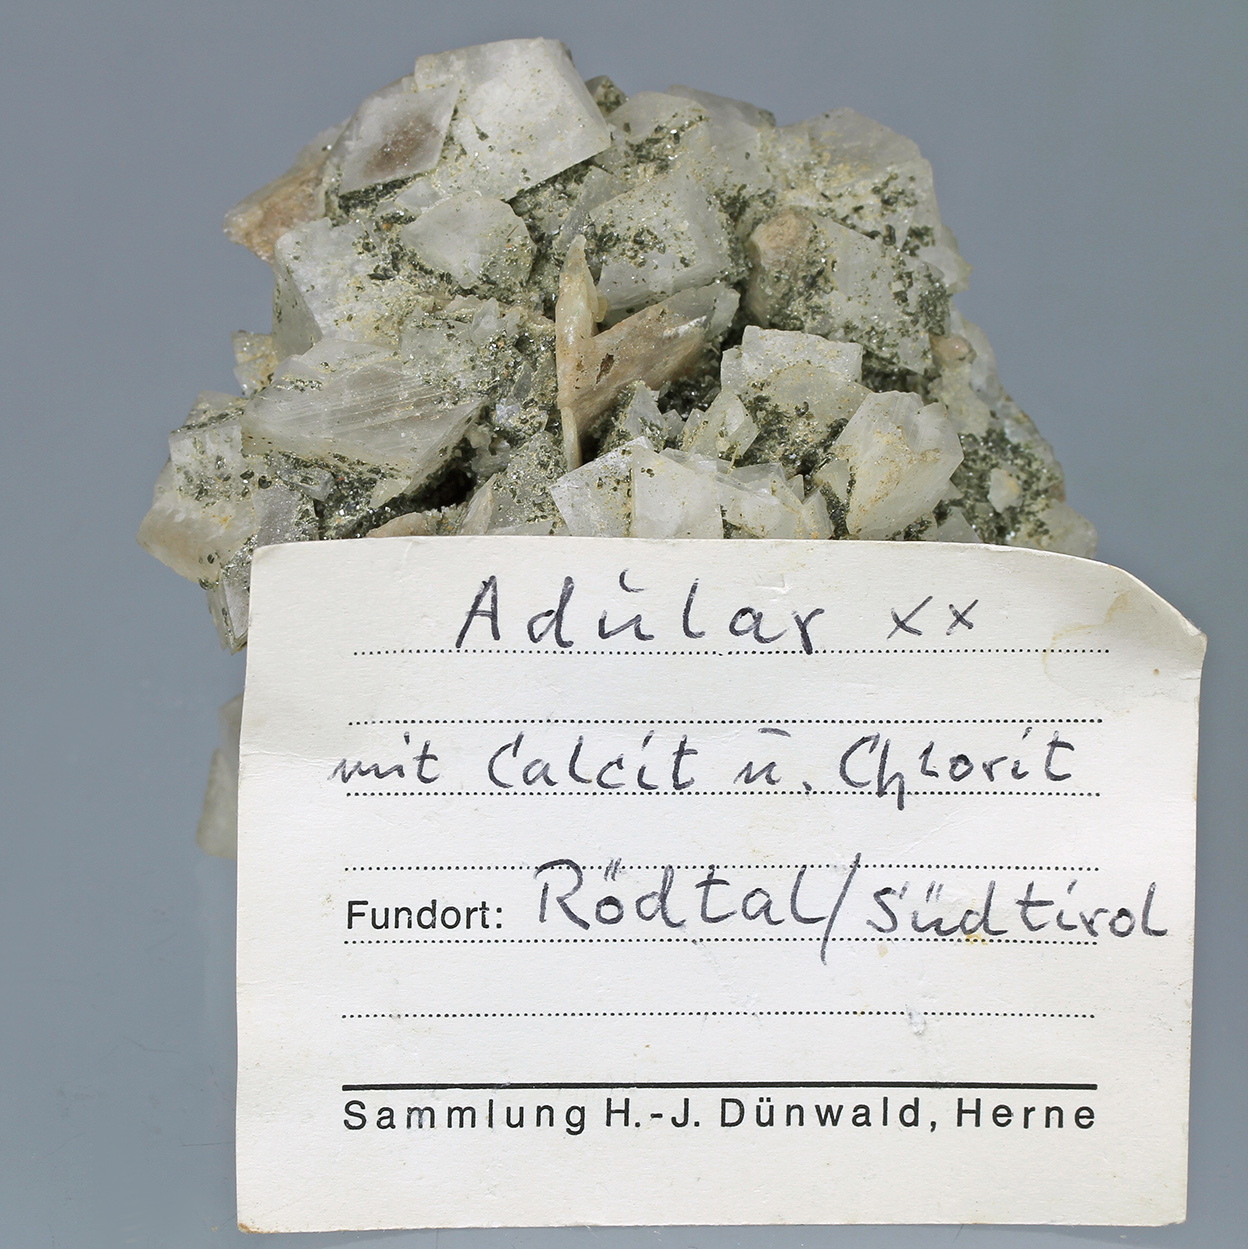 Adular xx
mit Calcit u. Chlorit
Fundort: Rödtal/Südtirol
Sammlung H.-J. Dünwald, Herne